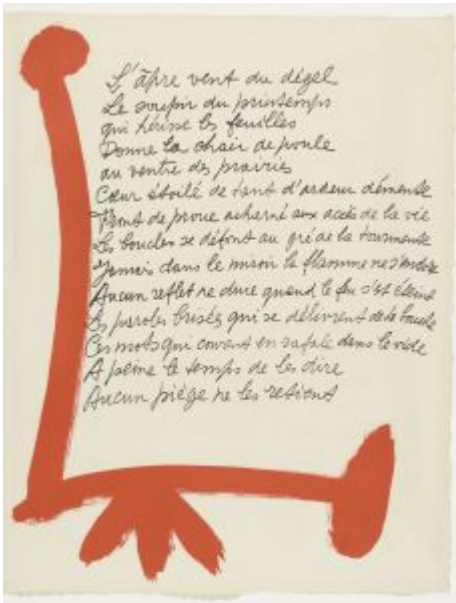 L'âpre vent du dégel
Le soupir du printemps
qui hérisse les feuilles
Donne la chair de poule
au ventre des prairies
Cœur étoilé de tant d'ardeur démente
Front de proue acharné aux accès de la vie
Les boucles se défont au gré de la tourmente
Jamais dans le miroir la flamme ne
Aucun reflet ne dure quand le feu s'est éteint
Les paroles brisées qui se délivrent de la bouche
Ces mots qui courent en rafale dans le vide
A peine le temps de les dire
Aucun piège ne les retient